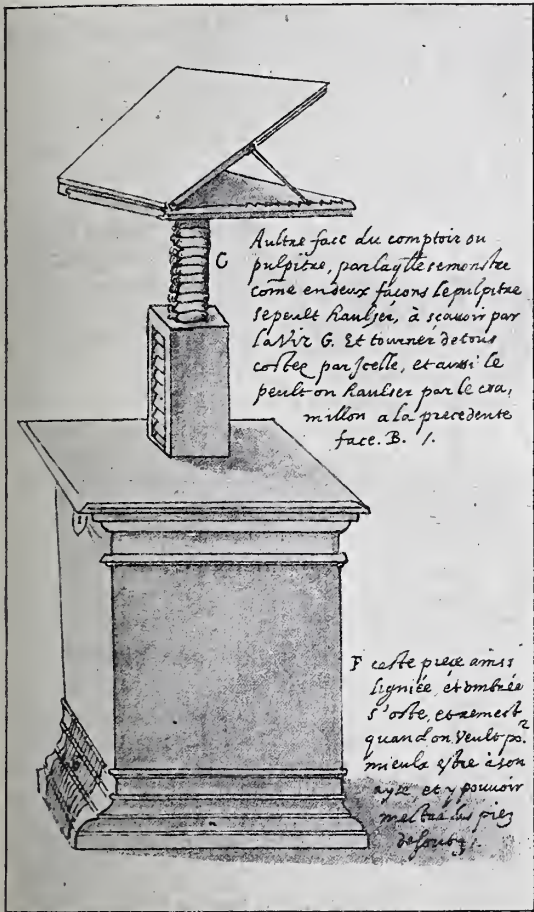 C
Aultre face du comptoir ou
pulpitre, par laqlle se monstre
cõme en deux façons le pulpitre
se peult haulser, à sçavoir par
la Viz G. Et tourner de tous
costez par jcelle, et aussi le
peult on haulser par le cra,
millon a la precedente
face. B. /.
F ceste piece ainsi
ligniée, et ombrée
s'oste, et remest
quand on veult po.r
mieulx estre à son
ayse, et y pouvoir
mettre les piez
desoubz /.